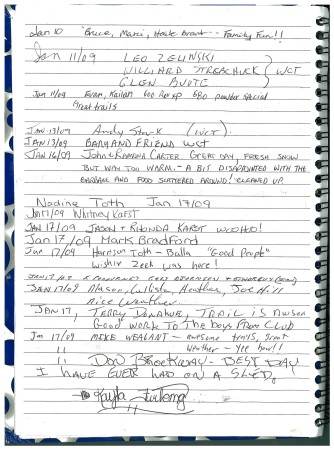 Jan 10 Bruce, Marci, Family Fun!!
Jan 11/09 LEO ZELINSKI
WILLIARD STREACHUCK } WCT
GLEN
Jan 11/09 Evan, Kaitlin 600 RK EP 680 powder special
Great trails
JAN 13/09 Andy (WCT)
JAN 13/09 BABY AND FRIEND WCT
JAN 16/09 JOHN & RAMONA CARTER. GREAT DAY, FRESH SNOW
BUT WAY TOO WARM. - A BIT DISAPPOINTED WITH THE
GARBAGE AND FOOD SCATTERED AROUND! CLEANED UP?
Nadine Toth Jan 17/09
Jan 17/09 Whitney Karst
JAN 17/09 JASON & RHONDA KARST WOOHOO!
Jan 17/09 Mark Bradford
Jan 17/09 Harrison Toth - Balla "Good People"
Wishin Zeek was here!
JAN 17/09
JAN 17/09 Mason, Callista, Heather, Joe Hill
nice Weather
JAN 17, Terry Donahue, TRAIL is Awsen
Good work To the boys From Club
Jan 17/09 MIKE WEALANT - awesome trails, great
weather - Yee haw!!
" Don - BEST DAY
I HAVE EVER HAD ON A SLED.
Kayla Furlong